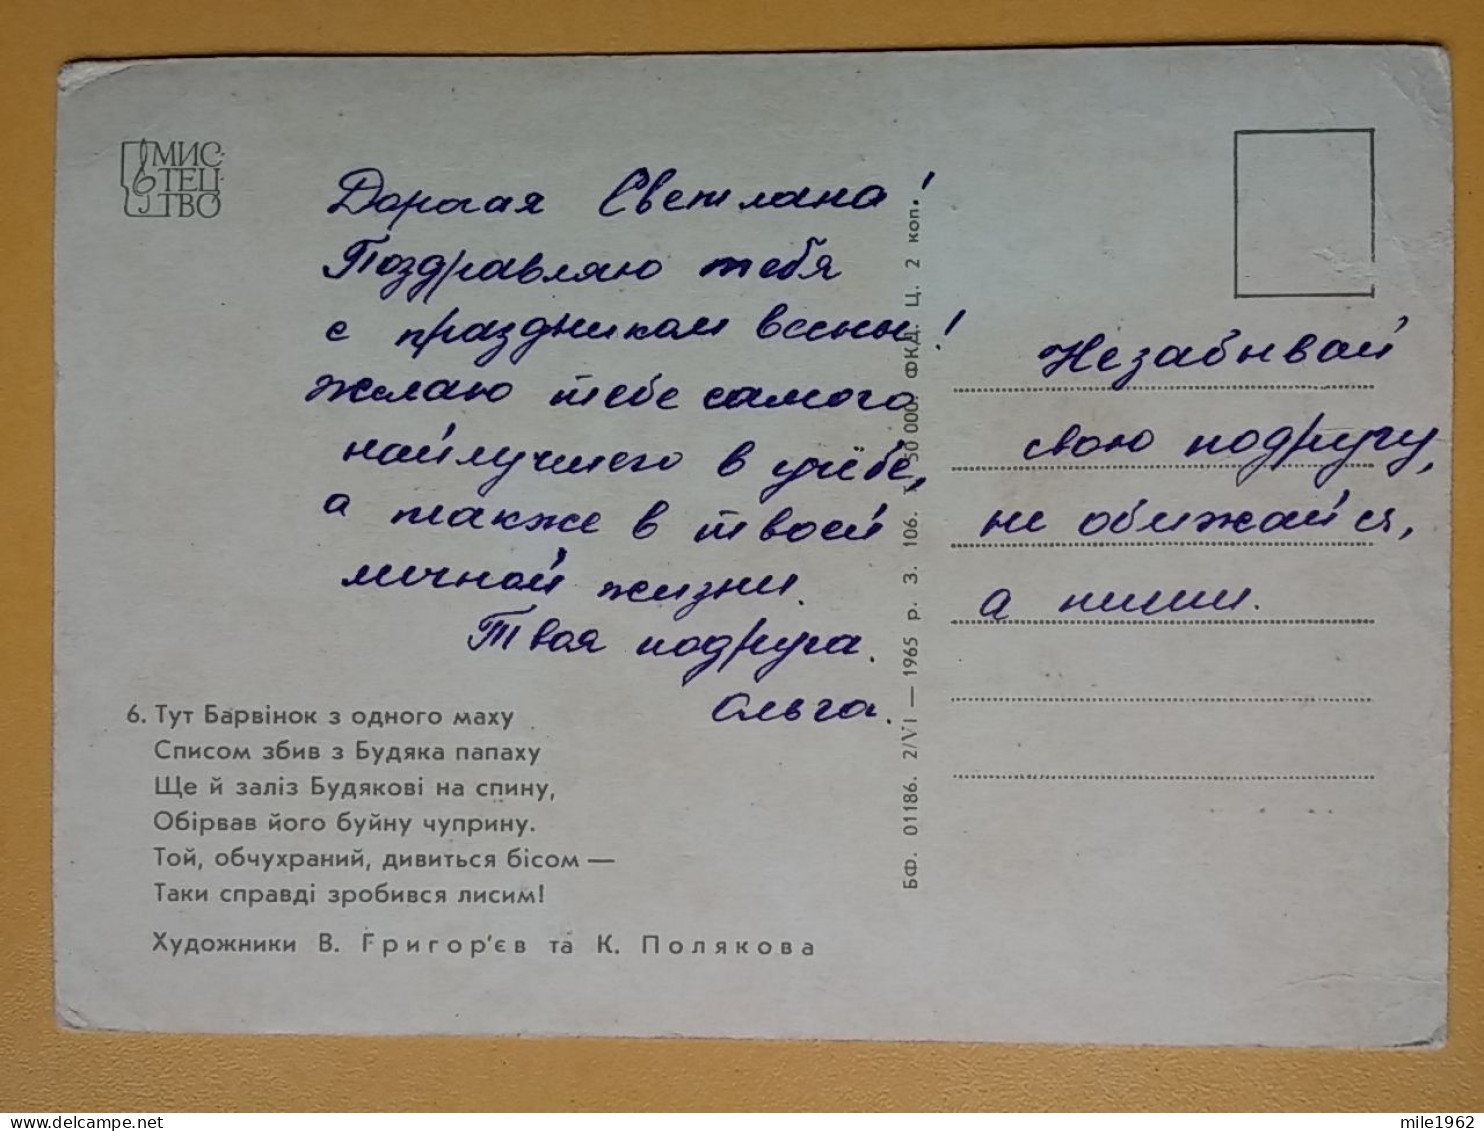 МИС-
ТЕЦ-
ТВО
Дорогая Светлана!
Поздравляю тебя
с праздником весны!
желаю тебе самого
наилучшего в учёбе,
а также в твоей
личной жизни.
Твоя подруга.
Ольга.
6. Тут Барвінок з одного маху
Списом збив з Будяка папаху
Ще й заліз Будякові на спину,
Обірвав його буйну чуприну.
Той, обчухраний, дивиться бісом —
Таки справді зробився лисим!
Художники В. Григор'єв та К. Полякова
БФ. 01186. 2/VI — 1965 р. З. 106. 50 000. ФКД. Ц. 2 коп.
Незабывай
свою подругу,
не обижайся,
а пиши.
mile1962